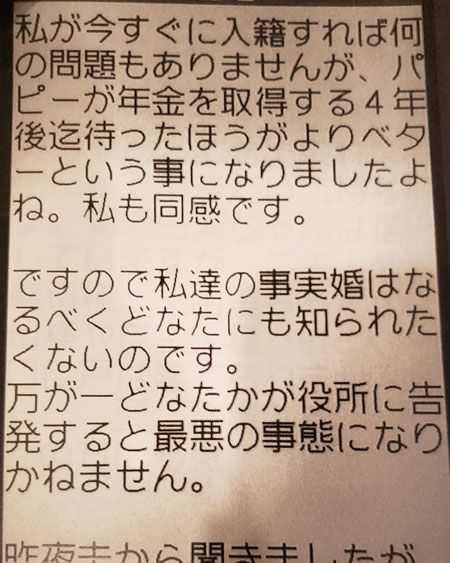 私が今すぐに入籍すれば何
の問題もありませんが、パ
ピーが年金を取得する４年
後迄待ったほうがよりベタ
ーという事になりましたよ
ね。私も同感です。
ですので私達の事実婚はな
るべくどなたにも知られた
くないのです。
万が一どなたかが役所に告
発すると最悪の事態になり
かねません。
昨夜夫から聞きましたが